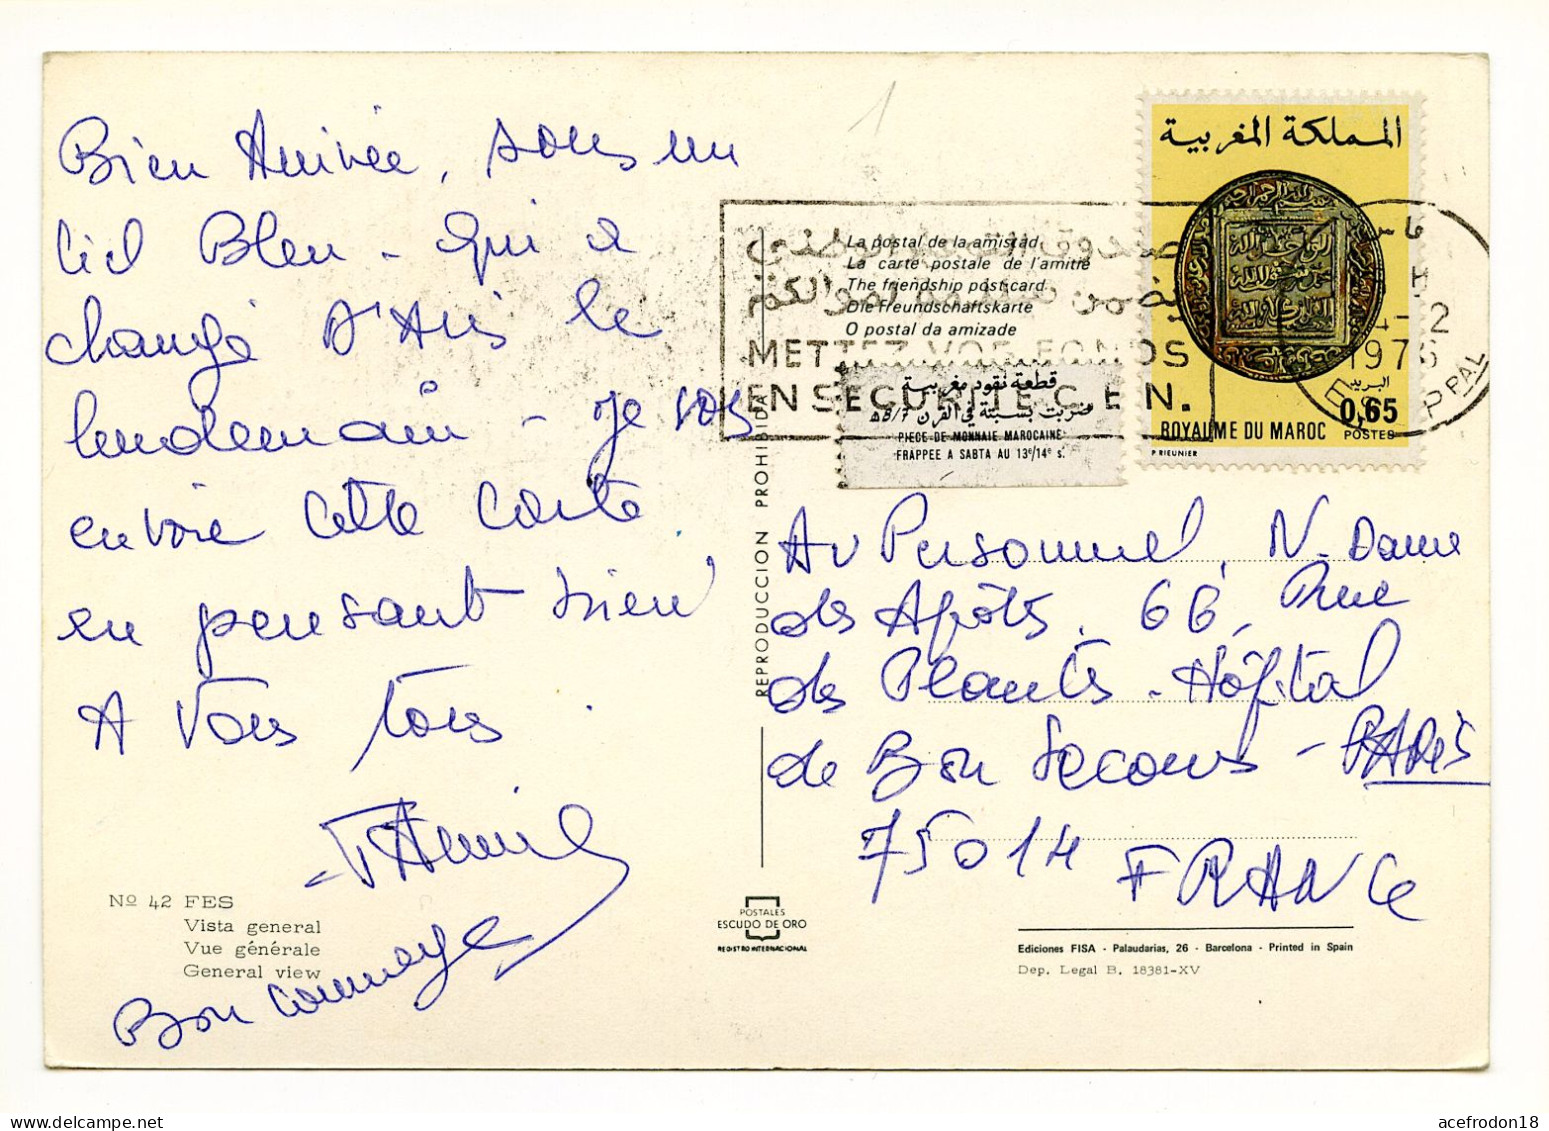 Bien Arrivée, sous un
Ciel Bleu - qui a
changé d'Avis le
lendemain - je vous
envoie cette carte
en pensant bien
A Vous tous.
Bon courage
Nº 42 FES
Vista general
Vue générale
General view
REPRODUCCION PROHIBIDA
POSTALES
ESCUDO DE ORO
REGISTRO INTERNACIONAL
La postal de la amistad
La carte postale de l'amitié
The friendship postcard
Die Freundschaftskarte
O postal da amizade
METTEZ VOS FONDS
EN SECURITE C.E.N.
قطعة نقود مغربية
ضربت بسبتة في القرن 7/8 ه
PIECE DE MONNAIE MAROCAINE
FRAPPEE A SABTA AU 13e/14e s.
المملكة المغربية
البريد
0,65
ROYAUME DU MAROC POSTES
P RIEUNIER
فاس
4-2
1976
Au Personnel, N. Dame
des Apôts, 66, Rue
des Plants - Hôpital
de Bon Secours - PARIS
75014 FRANCE
Ediciones FISA - Palaudarias, 26 - Barcelona - Printed in Spain
Dep. Legal B. 18381-XV
acefrodon18